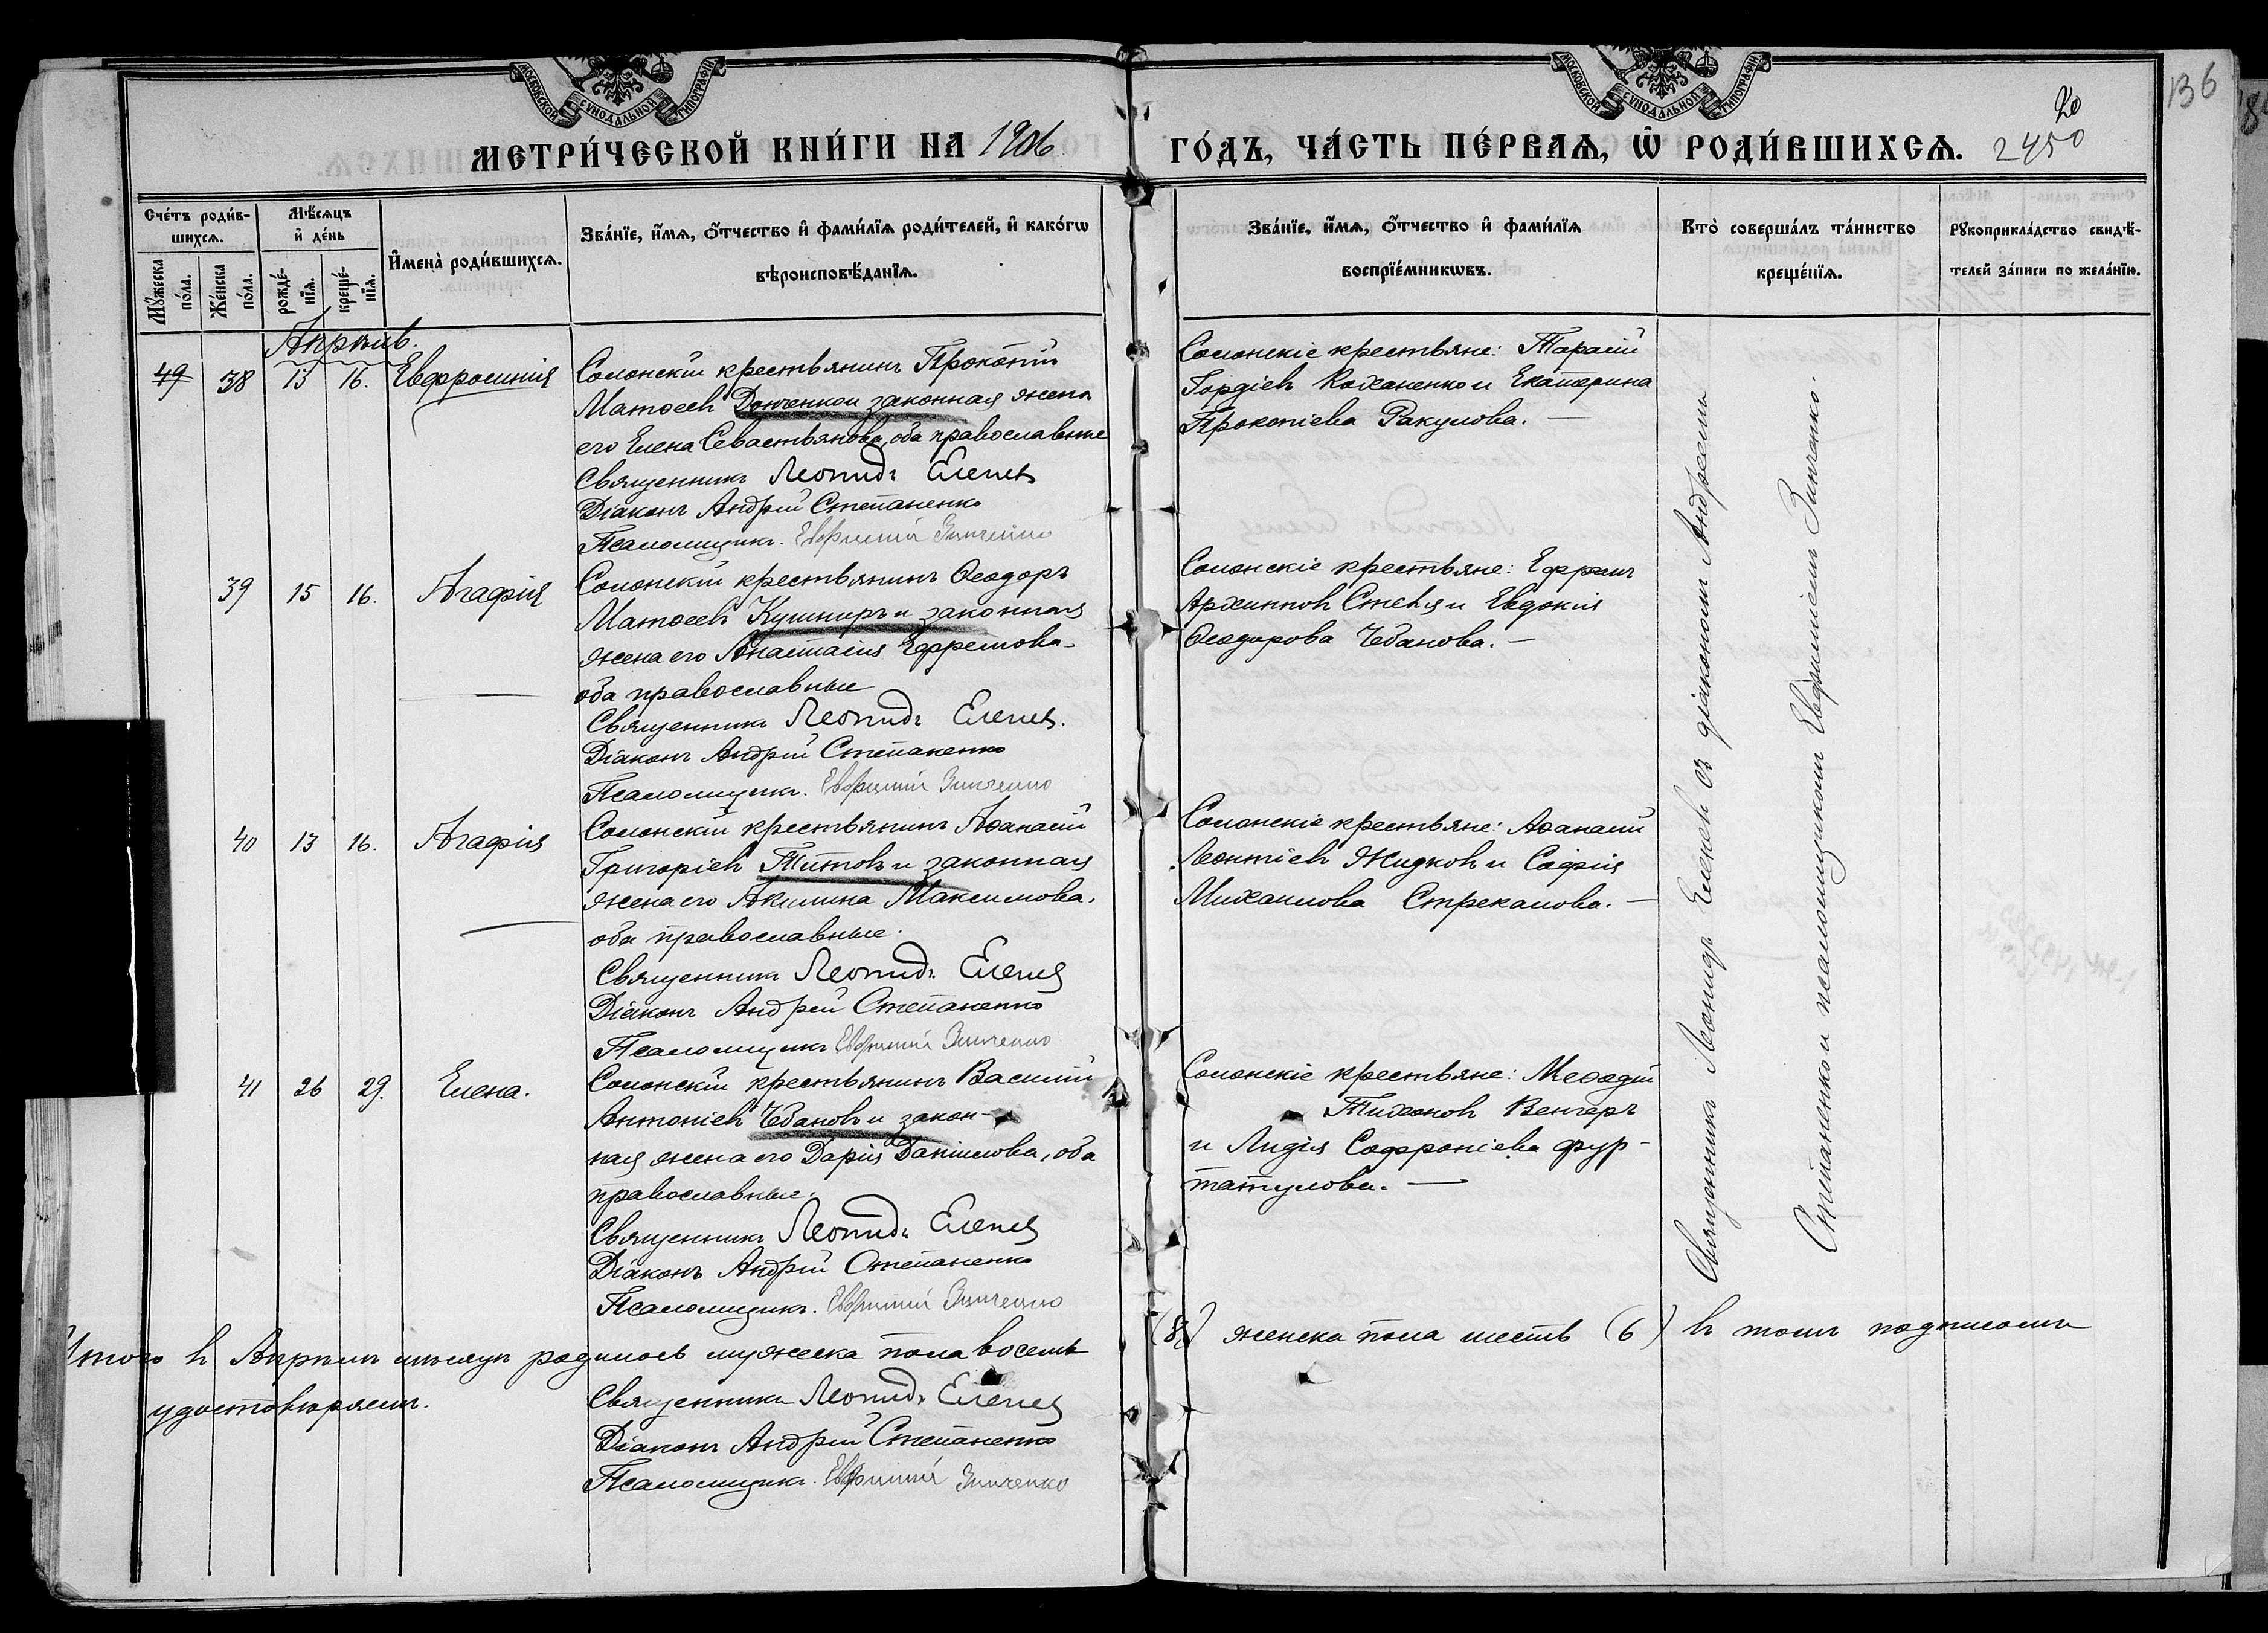 МОСКОВСКОЙ СѴНОДАЛЬНОЙ ТИПОГРАФІИ
МОСКОВСКОЙ СѴНОДАЛЬНОЙ ТИПОГРАФІИ
136
20
МЕТРИ́ЧЕСКОЙ КНИ́ГИ НА 1906
ГО́ДЪ, ЧА́СТЬ ПЕ́РВАѦ, Ѡ҆ РОДИ́ВШИХСѦ. 2450
Сче́тъ роди́в-
шихсѧ.
Мꙋ́жеска
по́ла.
Же́нска
по́ла.
Мѣ́сѧцъ
и҆ де́нь
рожде́-
нїѧ.
креще́-
нїѧ.
И҆мена̀ роди́вшихсѧ.
Зва́нїе, и҆́мѧ, ѻ҆́тчество и҆ фами́лїѧ роди́телей, и҆ како́гѡ
вѣроисповѣ́данїѧ.
Зва́нїе, и҆́мѧ, ѻ҆́тчество и҆ фами́лїѧ
воспрїе́мникѡвъ.
Кто̀ соверша́лъ та́инство
креще́нїѧ.
Рꙋкоприкла́дство свидѣ́-
телей за́писи по жела́нїю.
Апрѣль.
49 38 13 16. Евфросинія
Солонскій крестьянинъ Прокопій
Матѳеевъ Донченко и законная жена
его Елена Севастьянова, оба православные
Священникъ Леонидъ Еленев
Діаконъ Андрей Степаненко
Псаломщикъ. Евфимій Зинченко
Солонскіе крестьяне: Тарасій
Гордіевъ Коханенко и Екатерина
Прокопіева Ракулова. —
39 15 16. Агафія
Солонскій крестьянинъ Ѳеодоръ
Матѳеевъ Кушниръ и законная
жена его Анастасія Ефремова
оба православные
Священникъ Леонидъ Еленев.
Діаконъ Андрей Степаненко
Псаломщикъ. Евфимій Зинченко
Солонскіе крестьяне: Ефремъ
Архиповъ и Евдокія
Ѳеодорова Чебанова. —
40 13 16. Агафія
Солонскій крестьянинъ Аѳанасій
Григоріевъ Титовъ и законная
жена его Акилина Максимова,
оба православные.
Священникъ Леонидъ Еленев
Діаконъ Андрей Степаненко
Псаломщикъ Евфимій Зинченко
Солонскіе крестьяне: Аѳанасій
Леонтіевъ Жидковъ и Софія
Михаилова Стрекалова. —
41 26 29. Елена.
Солонскій крестьянинъ Василій
Антоніевъ Чебановъ и закон-
ная жена его Дарія Даніилова, оба
православные.
Священникъ Леонидъ Еленев
Діаконъ Андрей Степаненко
Псаломщикъ. Евфимій Зинченко
Солонскіе крестьяне: Меѳодій
Тихоновъ Венгеръ
и Лидія Софроніева Фур-
татулова. —
Священникъ Леонидъ Еленевъ съ діакономъ Андреемъ
Степаненко и псаломщикомъ Евфиміемъ Зинченко.
Итого въ Апрѣлѣ мѣсяцѣ родилось мужеска пола восемь (8) женска пола шесть (6) въ томъ подписомъ
удостовѣряемъ.
Священникъ Леонидъ Еленев
Діаконъ Андрей Степаненко
Псаломщикъ. Евфимій Зинченко